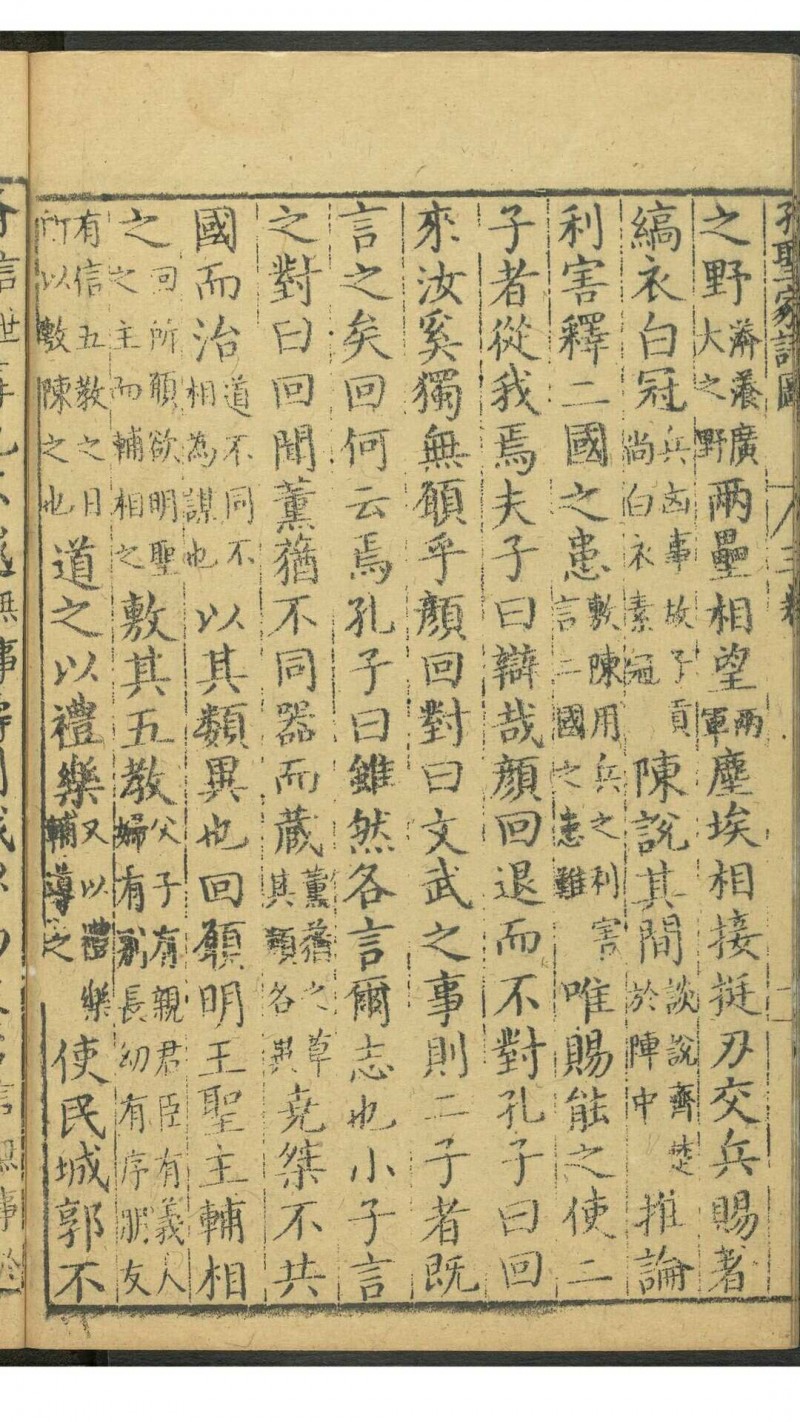 孔聖家語圖
之野漭瀁廣大之野兩壘相望兩軍塵埃相接挺刃交兵賜著
縞衣白冠兵凶事故子貢尚白衣素冠陳說其間談說齊楚於陣中推論
利害釋二國之患敷陳用兵之利害言二國之患難唯賜能之使二
子者從我焉夫子曰辯哉顏回退而不對孔子曰回
來汝奚獨無願乎顏回對曰文武之事則二子者既
言之矣回何云焉孔子曰雖然各言爾志也小子言
之對曰回聞薰蕕不同器而藏薰蕕之草其類各異堯桀不共
國而治道不同不相為謀也以其類異也回願明王聖主輔相
之回所願欲明聖之主而輔相之敷其五教父子有親君臣有義人婦有別長幼有序朋友
有信五教之日所以敷陳之也道之以禮樂又以禮樂輔導之使民城郭不